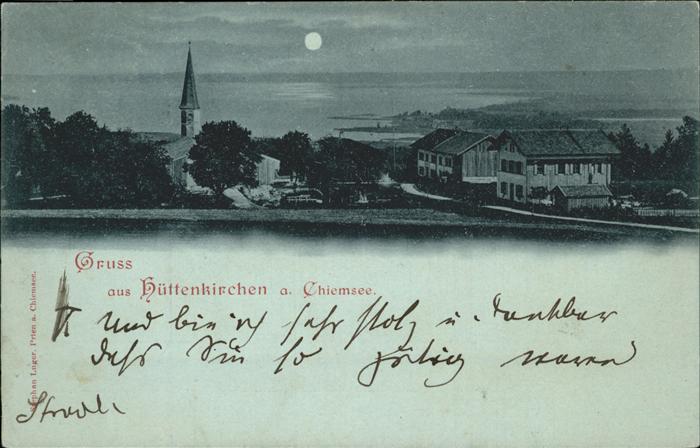 Gruss
aus Hüttenkirchen a. Chiemsee.
und bin ich sehr stolz u. dankbar
dass Sie so gütig waren
Stephan Luger, Prien a. Chiemsee.